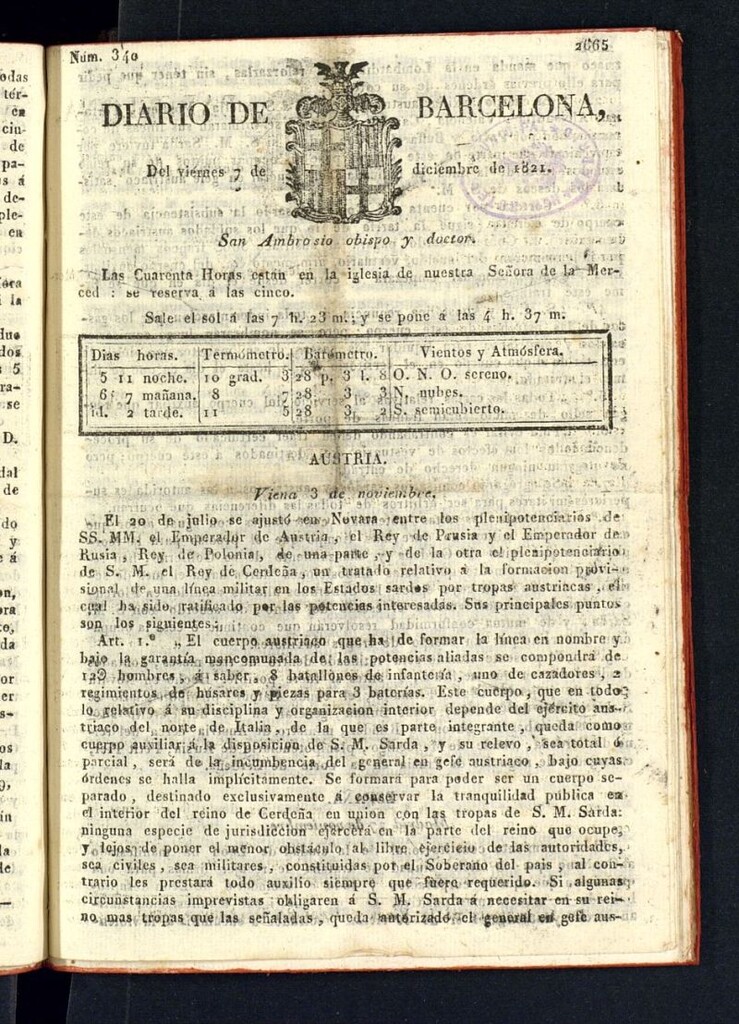 Núm. 340
2665
DIARIO DE BARCELONA,
Del viernes 7 de diciembre de 1821.
San Ambrosio obispo y doctor.
Las Cuarenta Horas estan en la iglesia de nuestra Señora de la Mer-
ced : se reserva á las cinco.
Sale el sol á las 7 h. 23 m.; y se pone á las 4 h. 37 m.
Dias horas. Termómetro. Barómetro. Vientos y Atmósfera.
5 11 noche. 10 grad. 3 28 p. 3 l. 8 O. N. O. sereno.
6 7 mañana. 8 7 28 3 3 N. nubes.
id. 2 tarde. 11 5 28 3 2 S. semicubierto.
AUSTRIA.
Viena 3 de noviembre.
El 20 de julio se ajustó en Novara entre los plenipotenciarios de
SS. MM. el Emperador de Austria, el Rey de Prusia y el Emperador de
Rusia, Rey de Polonia, de una parte, y de la otra el plenipotenciario
de S. M. el Rey de Cerdeña, un tratado relativo á la formacion provi-
sional de una línea militar en los Estados sardos por tropas austriacas, el
cual ha sido ratificado por las potencias interesadas. Sus principales puntos
son los siguientes:
Art. 1.º „El cuerpo austriaco que ha de formar la línea en nombre y
bajo la garantía mancomunada de las potencias aliadas se compondrá de
12@ hombres, á saber, 8 batallones de infantería, uno de cazadores, 2
regimientos de húsares y piezas para 3 baterías. Este cuerpo, que en todo
lo relativo á su disciplina y organizacion interior depende del ejército aus-
triaco del norte de Italia, de la que es parte integrante, queda como
cuerpo auxiliar á la disposicion de S. M. Sarda, y su relevo, sea total ó
parcial, será de la incumbencia del general en gefe austriaco, bajo cuyas
órdenes se halla implícitamente. Se formará para poder ser un cuerpo se-
parado, destinado exclusivamente á conservar la tranquilidad pública en
el interior del reino de Cerdeña en union con las tropas de S. M. Sarda:
ninguna especie de jurisdiccion ejercerá en la parte del reino que ocupe,
y lejos de poner el menor obstáculo al libre ejercicio de las autoridades,
sea civiles, sea militares, constituidas por el Soberano del pais, al con-
trario les prestará todo auxilio siempre que fuere requerido. Si algunas
circunstancias imprevistas obligaren á S. M. Sarda á necesitar en su rei-
no mas tropas que las señaladas, queda autorizado el general en gefe aus-